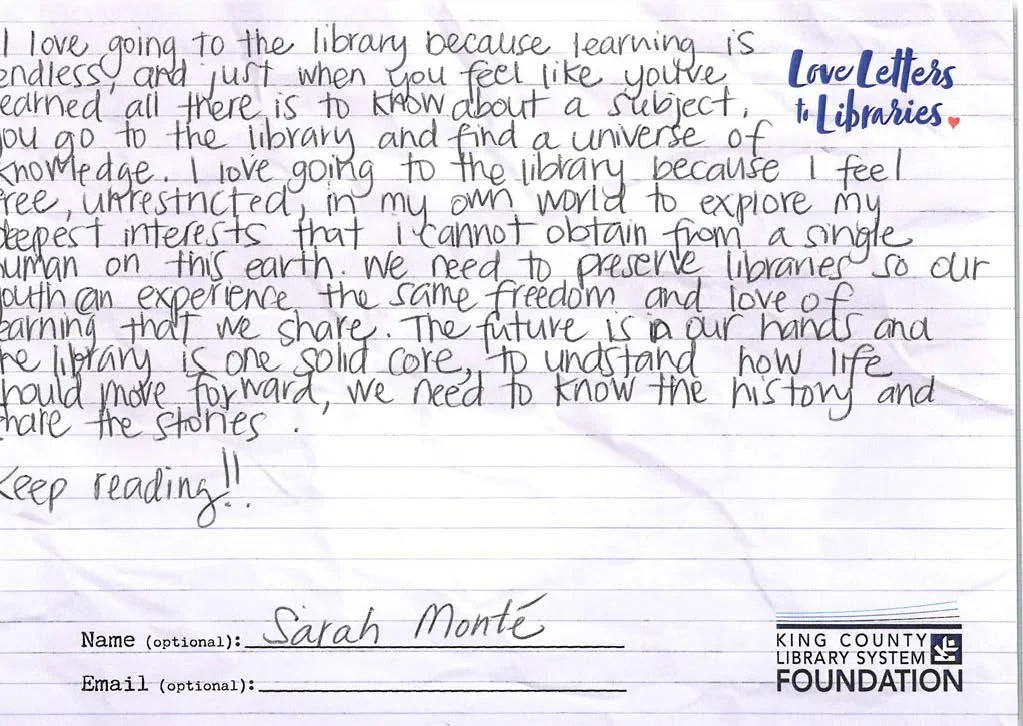 I love going to the library because learning is
endless, and just when you feel like you've
earned all there is to know about a subject,
you go to the library and find a universe of
knowledge. I love going to the library because I feel
ree, unrestricted, in my own world to explore my
deepest interests that i cannot obtain from a single
uman on this earth. We need to preserve libraries so our
outh can experience the same freedom and love of
earning that we share. The future is in our hands and
he library is one solid core, to undstand how life
hould move forward, we need to know the history and
hare the stories.
Keep reading!!
Love Letters
to Libraries
Name (optional): Sarah Monté
Email (optional):
KING COUNTY
LIBRARY SYSTEM
FOUNDATION